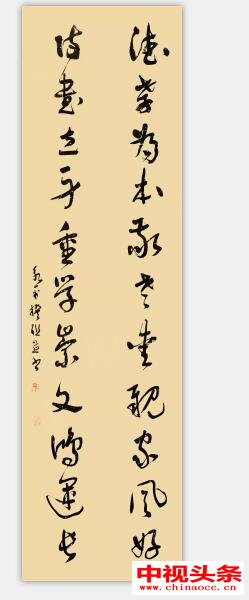 德孝为本敬老爱亲家风好
诗书立身重学崇文鸿运长
中视头条
www.chinaocc.cn